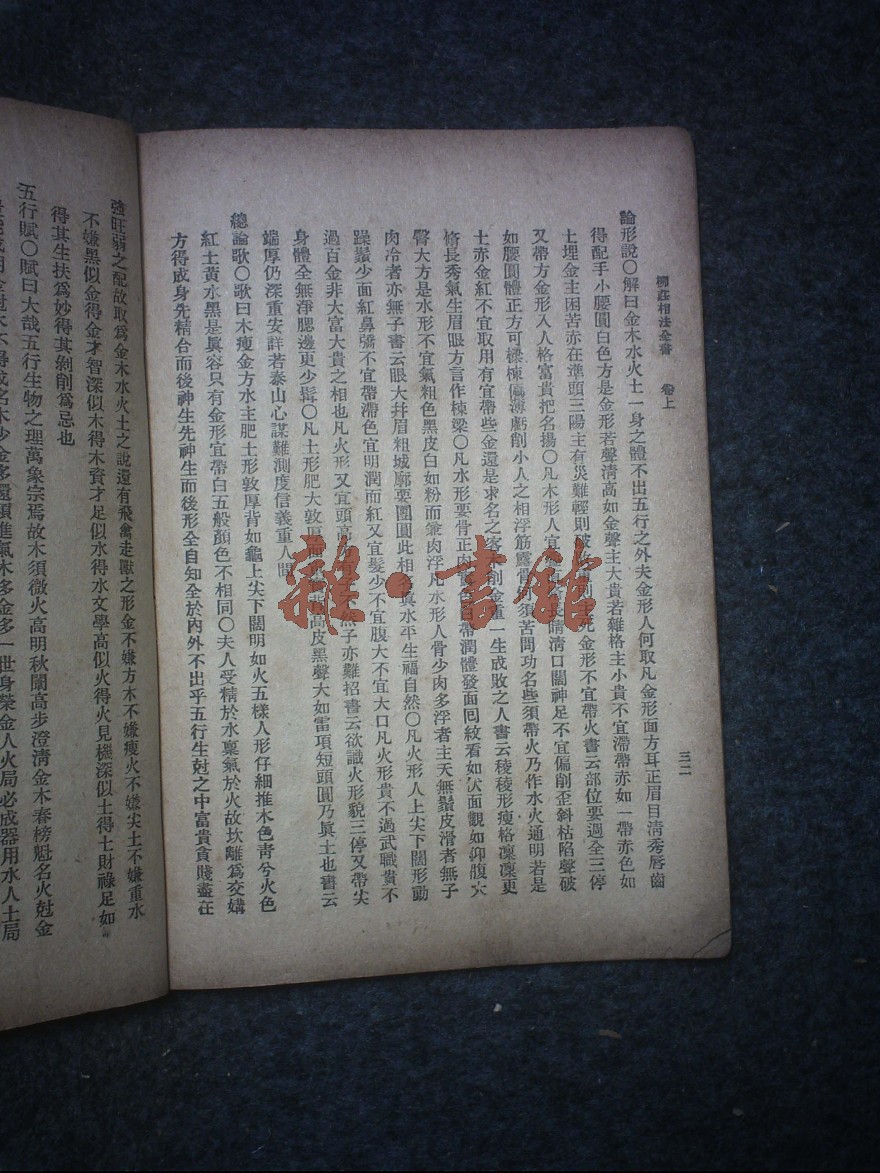 柳莊相法全書　卷上　三二
論形說〇解曰金木水火土一身之體不出五行之外夫金形人何取凡金形面方耳正眉目清秀唇齒
得配手小腰圓白色方是金形若聲清高如金聲主大貴若雜格主小貴不宜滯帶赤如一帶赤色如
土埋金主困苦赤在準頭三陽主有災難輕則破
死金形不宜帶火書云部位要週全三停
又帶方金形入人格富貴把名揚〇凡木形人宜
長睛清口闊神足不宜偏削歪斜枯陷聲破
如腰圓體正方可樑棟偏薄虧削小人之相浮筋露骨
須苦問功名些須帶火乃作水火通明若是
土赤金紅不宜取用有宜帶些金還是求名之客木削金重一生成敗之人書云稜稜形瘦格凜凜更
脩長秀氣生眉眼方言作棟梁〇凡水形要骨正肉
白帶潤體發面囘紋看如伏面觀如仰腹大
臀大方是水形不宜氣粗色黑皮白如粉而兼肉浮凡水形人骨少肉多浮者主夭無鬚皮滑者無子
肉冷者亦無子書云眼大幷眉粗城廓要團圓此相
眞水平生福自然〇凡火形人上尖下闊形動
躁鬚少面紅鼻驕不宜帶滯色宜明潤而紅又宜髮少不宜腹大不宜大口凡火形貴不過武職貴不
過百金非大富大貴之相也凡火形又宜頭高
無子亦難招書云欲識火形貌三停又帶尖
身體全無淨腮邊更少髯〇凡土形肥大敦厚面
高皮黑聲大如雷項短頭圓乃眞土也書云
端厚仍深重安詳若泰山心謀難測度信義重人間
總論歌〇歌曰木瘦金方水主肥土形敦厚背如龜上尖下闊明如火五樣人形仔細推木色青兮火色
紅土黃水黑是眞容只有金形宜帶白五般顏色不相同〇夫人受精於水稟氣於火故坎離爲交媾
方得成身先精合而後神生先神生而後形全自知全於內外不出乎五行生尅之中富貴貧賤盡在
強旺弱之配故取爲金木水火土之說還有飛禽走獸之形金不嫌方木不嫌瘦火不嫌尖土不嫌重水
不嫌黑似金得金才智深似木得木資才足似水得水文學高似火得火見機深似土得土財祿足如
得其生扶爲妙得其剝削爲忌也
五行賦〇賦曰大哉五行生物之理萬象宗焉故木須微火高明秋闈高步澄清金木春榜魁名火尅金
木多金多一世身榮金人火局必成器用水人土局
雜·書館